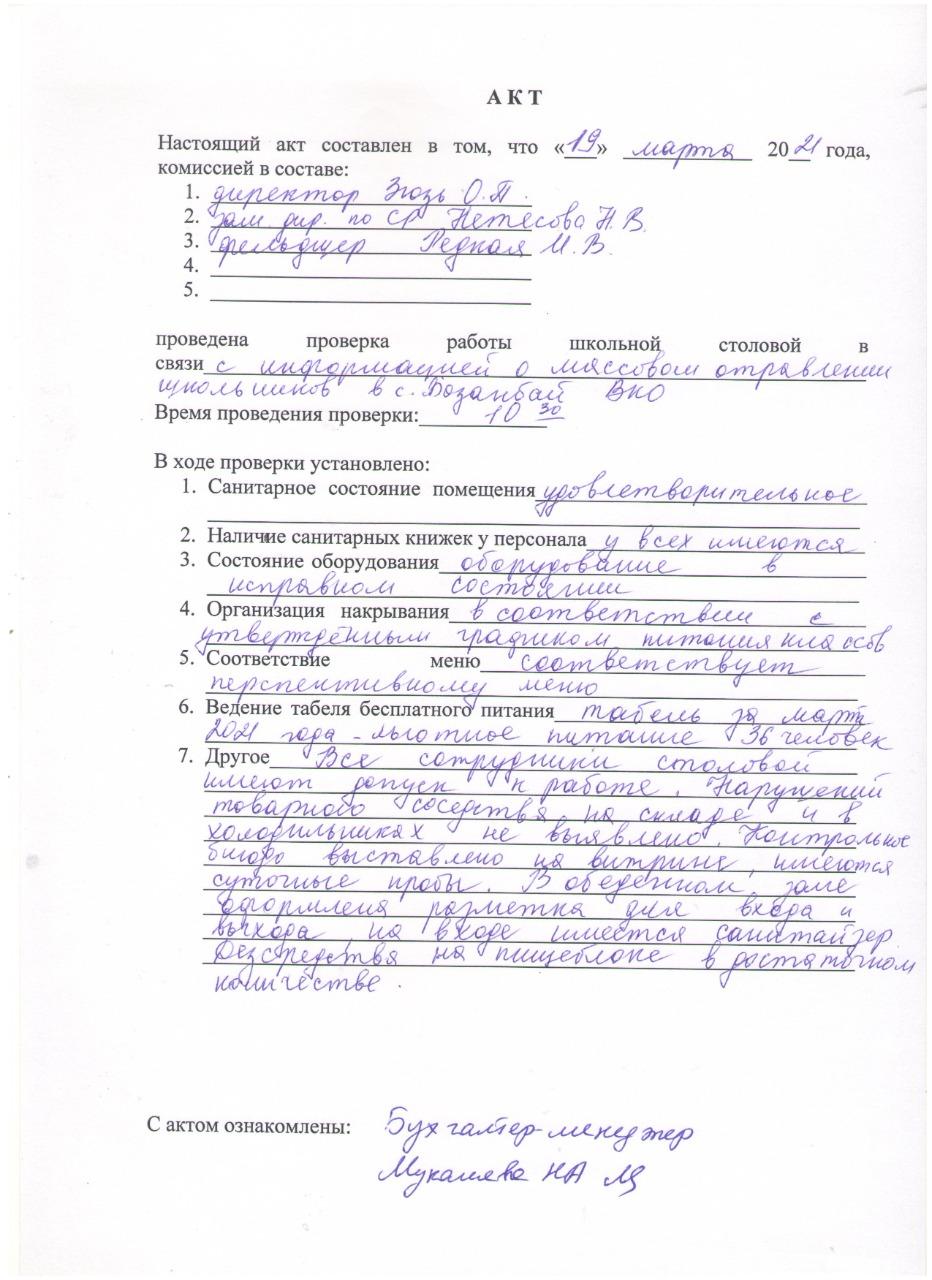 АКТ
Настоящий акт составлен в том, что «19» марта 2021 года,
комиссией в составе:
1. директор Згозь О.П.
2. зам. дир. по СР Нетесова Н.В.
3. фельдшер Редкая И.В.
4.
5.
проведена проверка работы школьной столовой в
связи с информацией о массовом отравлении
школьников в с. Бозанбай ВКО
Время проведения проверки: 10 30
В ходе проверки установлено:
1. Санитарное состояние помещения удовлетворительное
2. Наличие санитарных книжек у персонала у всех имеются
3. Состояние оборудования оборудование в
исправном состоянии
4. Организация накрывания в соответствии с
утверждённым графиком питания классов
5. Соответствие меню соответствует
перспективному меню
6. Ведение табеля бесплатного питания табель за март
2021 года - льготное питание 36 человек
7. Другое Все сотрудники столовой
имеют допуск к работе. Нарушений
товарного соседства на складе и в
холодильниках не выявлено. Контрольное
блюдо выставлено на витрине, имеются
суточные пробы. В обеденном зале
оформлена разметка для входа и
выхода, на входе имеется санитайзер
Дезсредства на пищеблоке в достаточном
количестве.
С актом ознакомлены: Бухгалтер-менеджер
НА